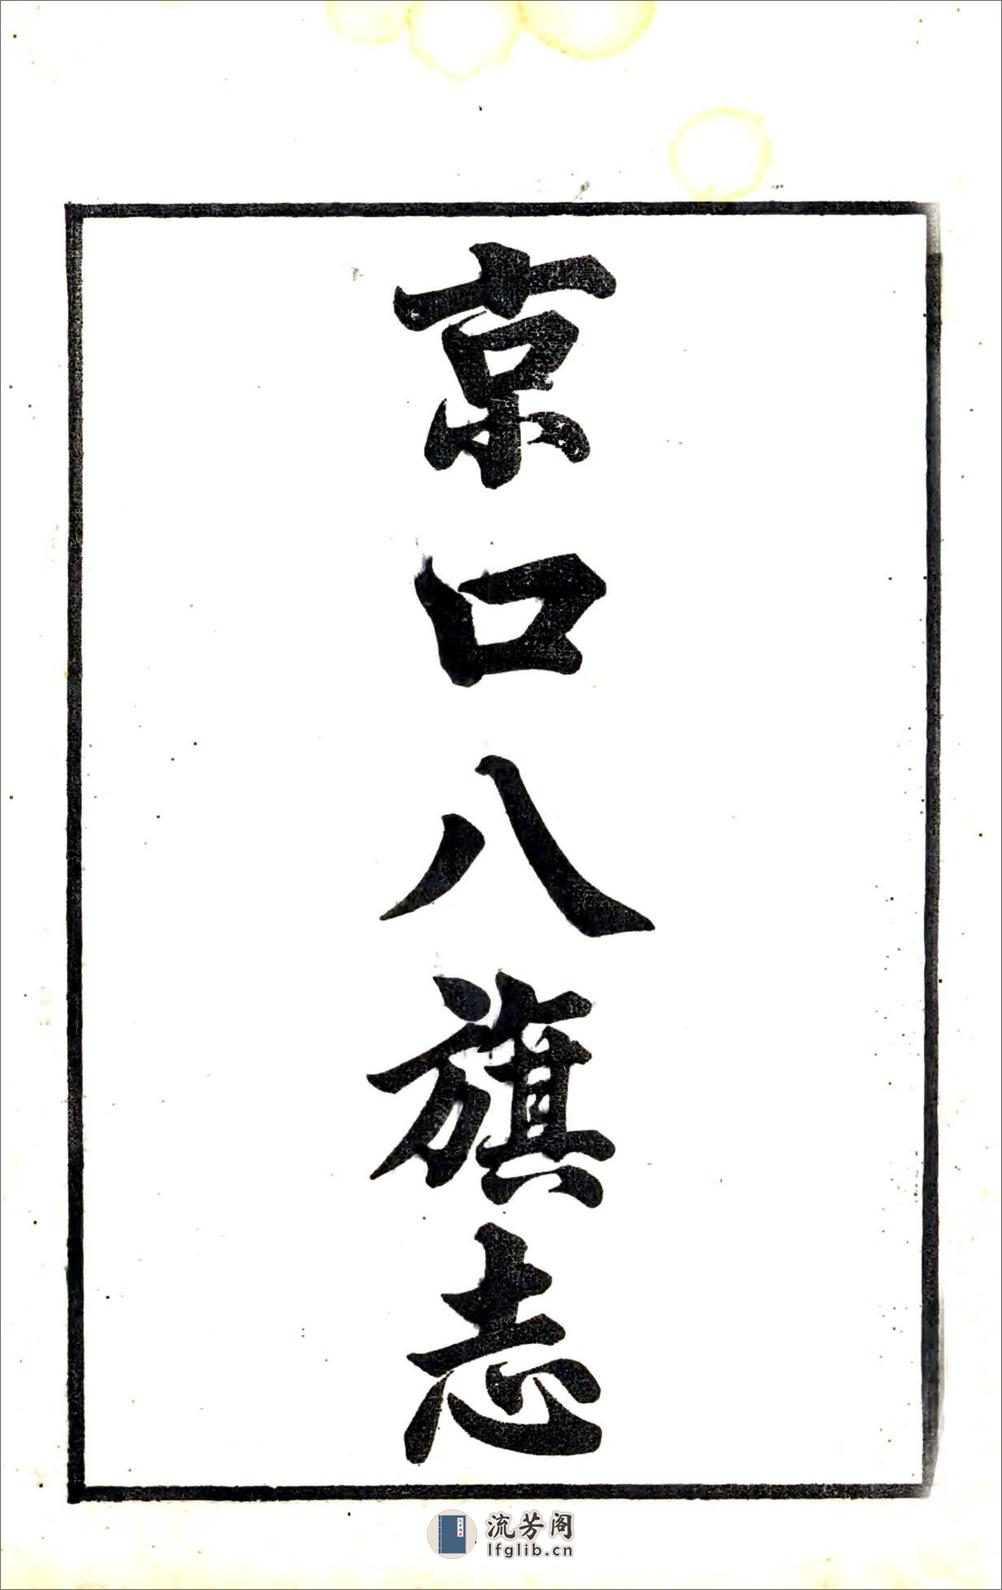 京口八旗志
流芳阁
lfglib.cn